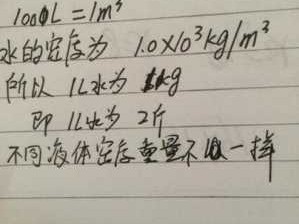 1000L=1m³
水的密度为 1.0×10³kg/m³
所以 1L水为 1kg
即 1L水为 2斤
不同液体密度重量不一样